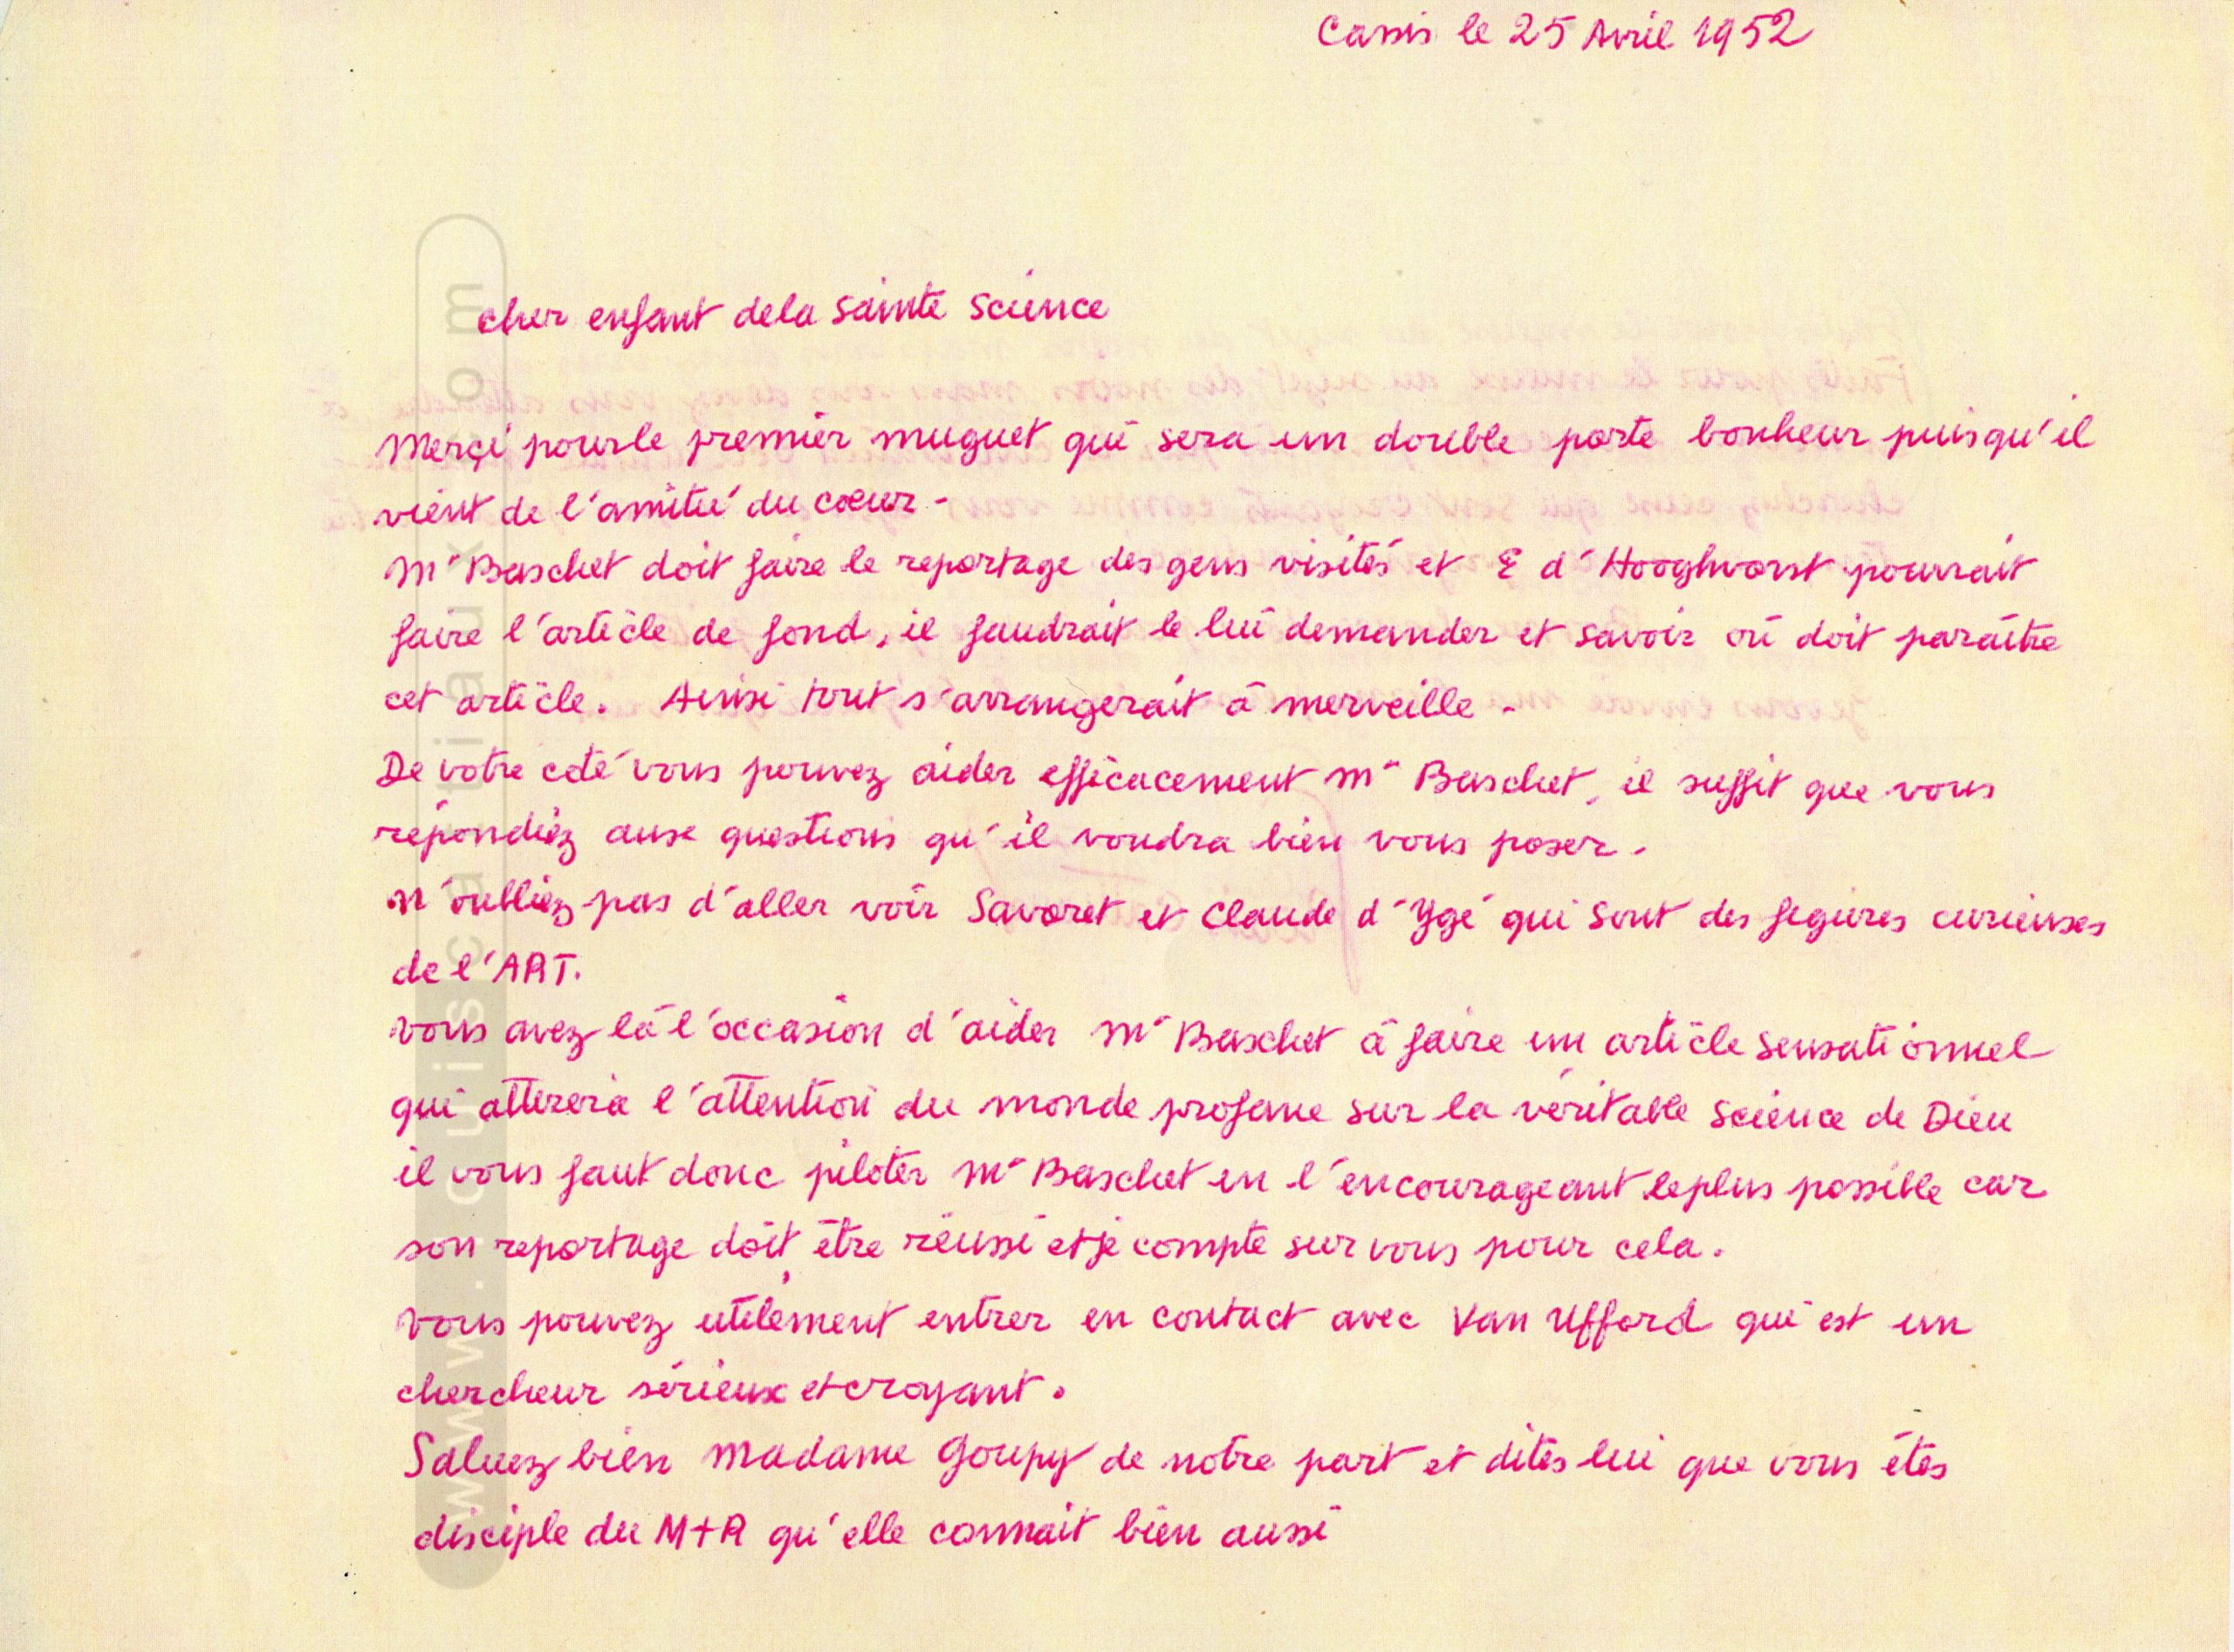 Cassis le 25 Avril 1952
cher enfant dela Sainte Science
Merçi pourle premier muguet qui sera un double porte bonheur puisqu'il
vient de l'amitié du cœur -
Mr Baschet doit faire le reportage des gens visités et E d'Hooghvorst pourrait
faire l'article de fond, il faudrait le lui demander et savoir où doit paraître
cet article. Ainsi tout s'arrangerait à merveille -
De votre coté vous pouvez aider efficacement Mr Baschet, il suffit que vous
répondiez aux questions qu'il voudra bien vous poser.
N'oubliez pas d'aller voir Savoret et Claude d'Ygé qui sont des figures curieuses
de l'ART.
Vous avez là l'occasion d'aider Mr Baschet à faire un article sensationnel
qui attirera l'attention du monde profane sur la véritable science de Dieu
il vous faut donc piloter Mr Baschet en l'encourageant leplus possible car
son reportage doit être réussi etje compte sur vous pour cela.
Vous pouvez utilement entrer en contact avec Van Ufford qui est un
chercheur sérieux et croyant.
Saluez bien Madame Goupy de notre part et dites lui que vous étes
disciple du M+R qu'elle connait bien aussi
www.louiscattiaux.com